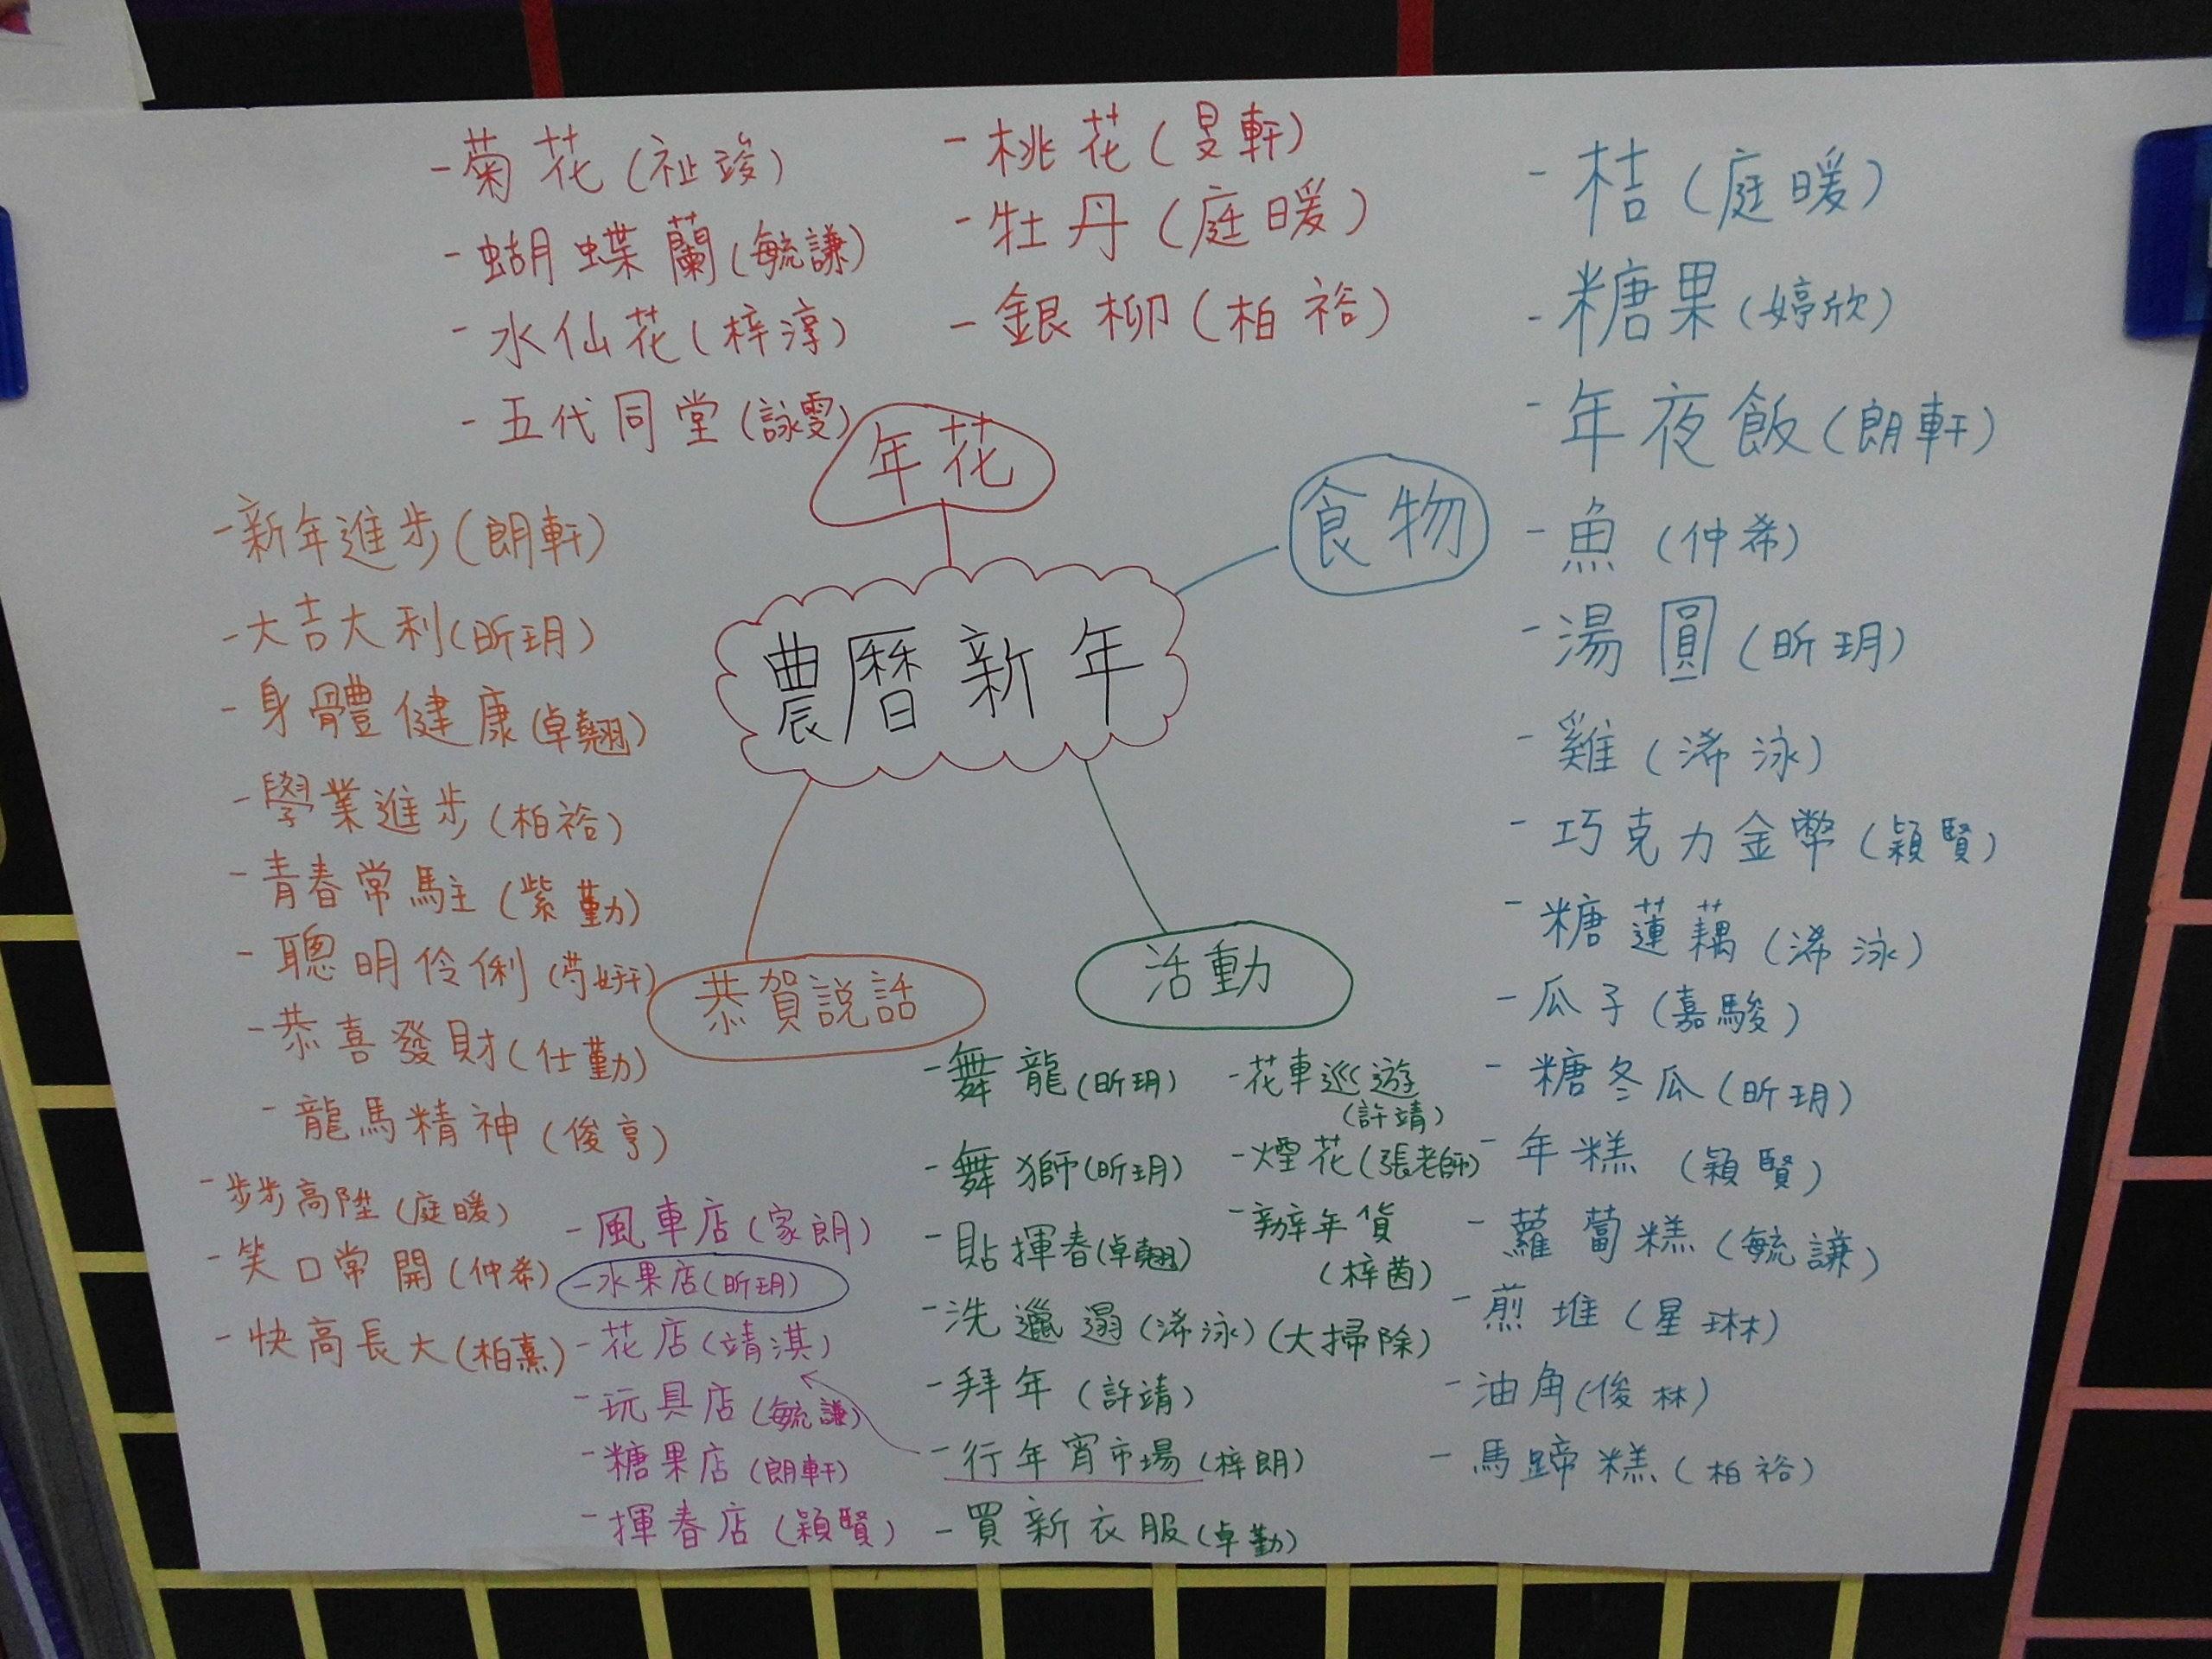 -菊花(祉竣)
-蝴蝶蘭(毓謙)
-水仙花(梓淳)
-五代同堂(詠雯)
-桃花(旻軒)
-牡丹(庭暖)
-銀柳(柏裕)
年花
食物
-桔(庭暖)
-糖果(婷欣)
-年夜飯(朗軒)
-魚(仲希)
-湯圓(昕玥)
-雞(浠泳)
-巧克力金幣(穎賢)
-糖蓮藕(浠泳)
-瓜子(嘉駿)
-糖冬瓜(昕玥)
-年糕(穎賢)
-蘿蔔糕(毓謙)
-煎堆(星琳)
-油角(俊林)
-馬蹄糕(柏裕)
農曆新年
-新年進步(朗軒)
-大吉大利(昕玥)
-身體健康(卓翹)
-學業進步(柏裕)
-青春常駐(紫勤)
-聰明伶俐(芍妍)
-恭喜發財(仕勤)
-龍馬精神(俊亨)
-步步高陞(庭暖)
-笑口常開(仲希)
-快高長大(柏熹)
恭賀說話
活動
-舞龍(昕玥)
-舞獅(昕玥)
-貼揮春(卓翹)
-洗邋遢(浠泳)(大掃除)
-拜年(許靖)
-行年宵市場(梓朗)
-買新衣服(卓勤)
-花車巡遊
(許靖)
-煙花(張老師)
-辦年貨
(梓茵)
-風車店(家朗)
-水果店(昕玥)
-花店(靖淇)
-玩具店(毓謙)
-糖果店(朗軒)
-揮春店(穎賢)